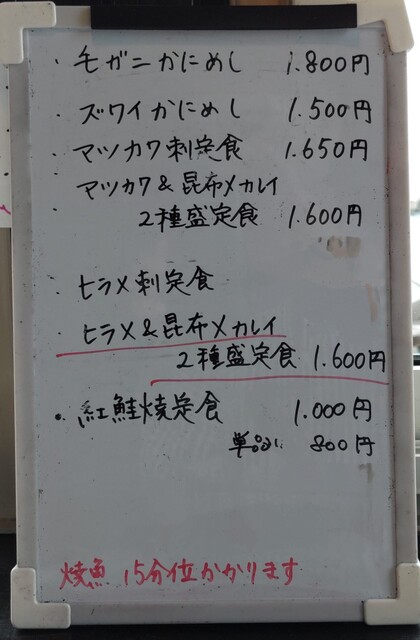 ・モガニかにめし 1.800円
・ズワイかにめし 1.500円
・マツカワ刺定食 1.650円
マツカワ&昆布〆カレイ
2種盛定食 1.600円
・ヒラメ刺定食
・ヒラメ&昆布〆カレイ
2種盛定食 1.600円
・紅鮭焼定食 1.000円
単品 800円
焼魚 15分位かかります